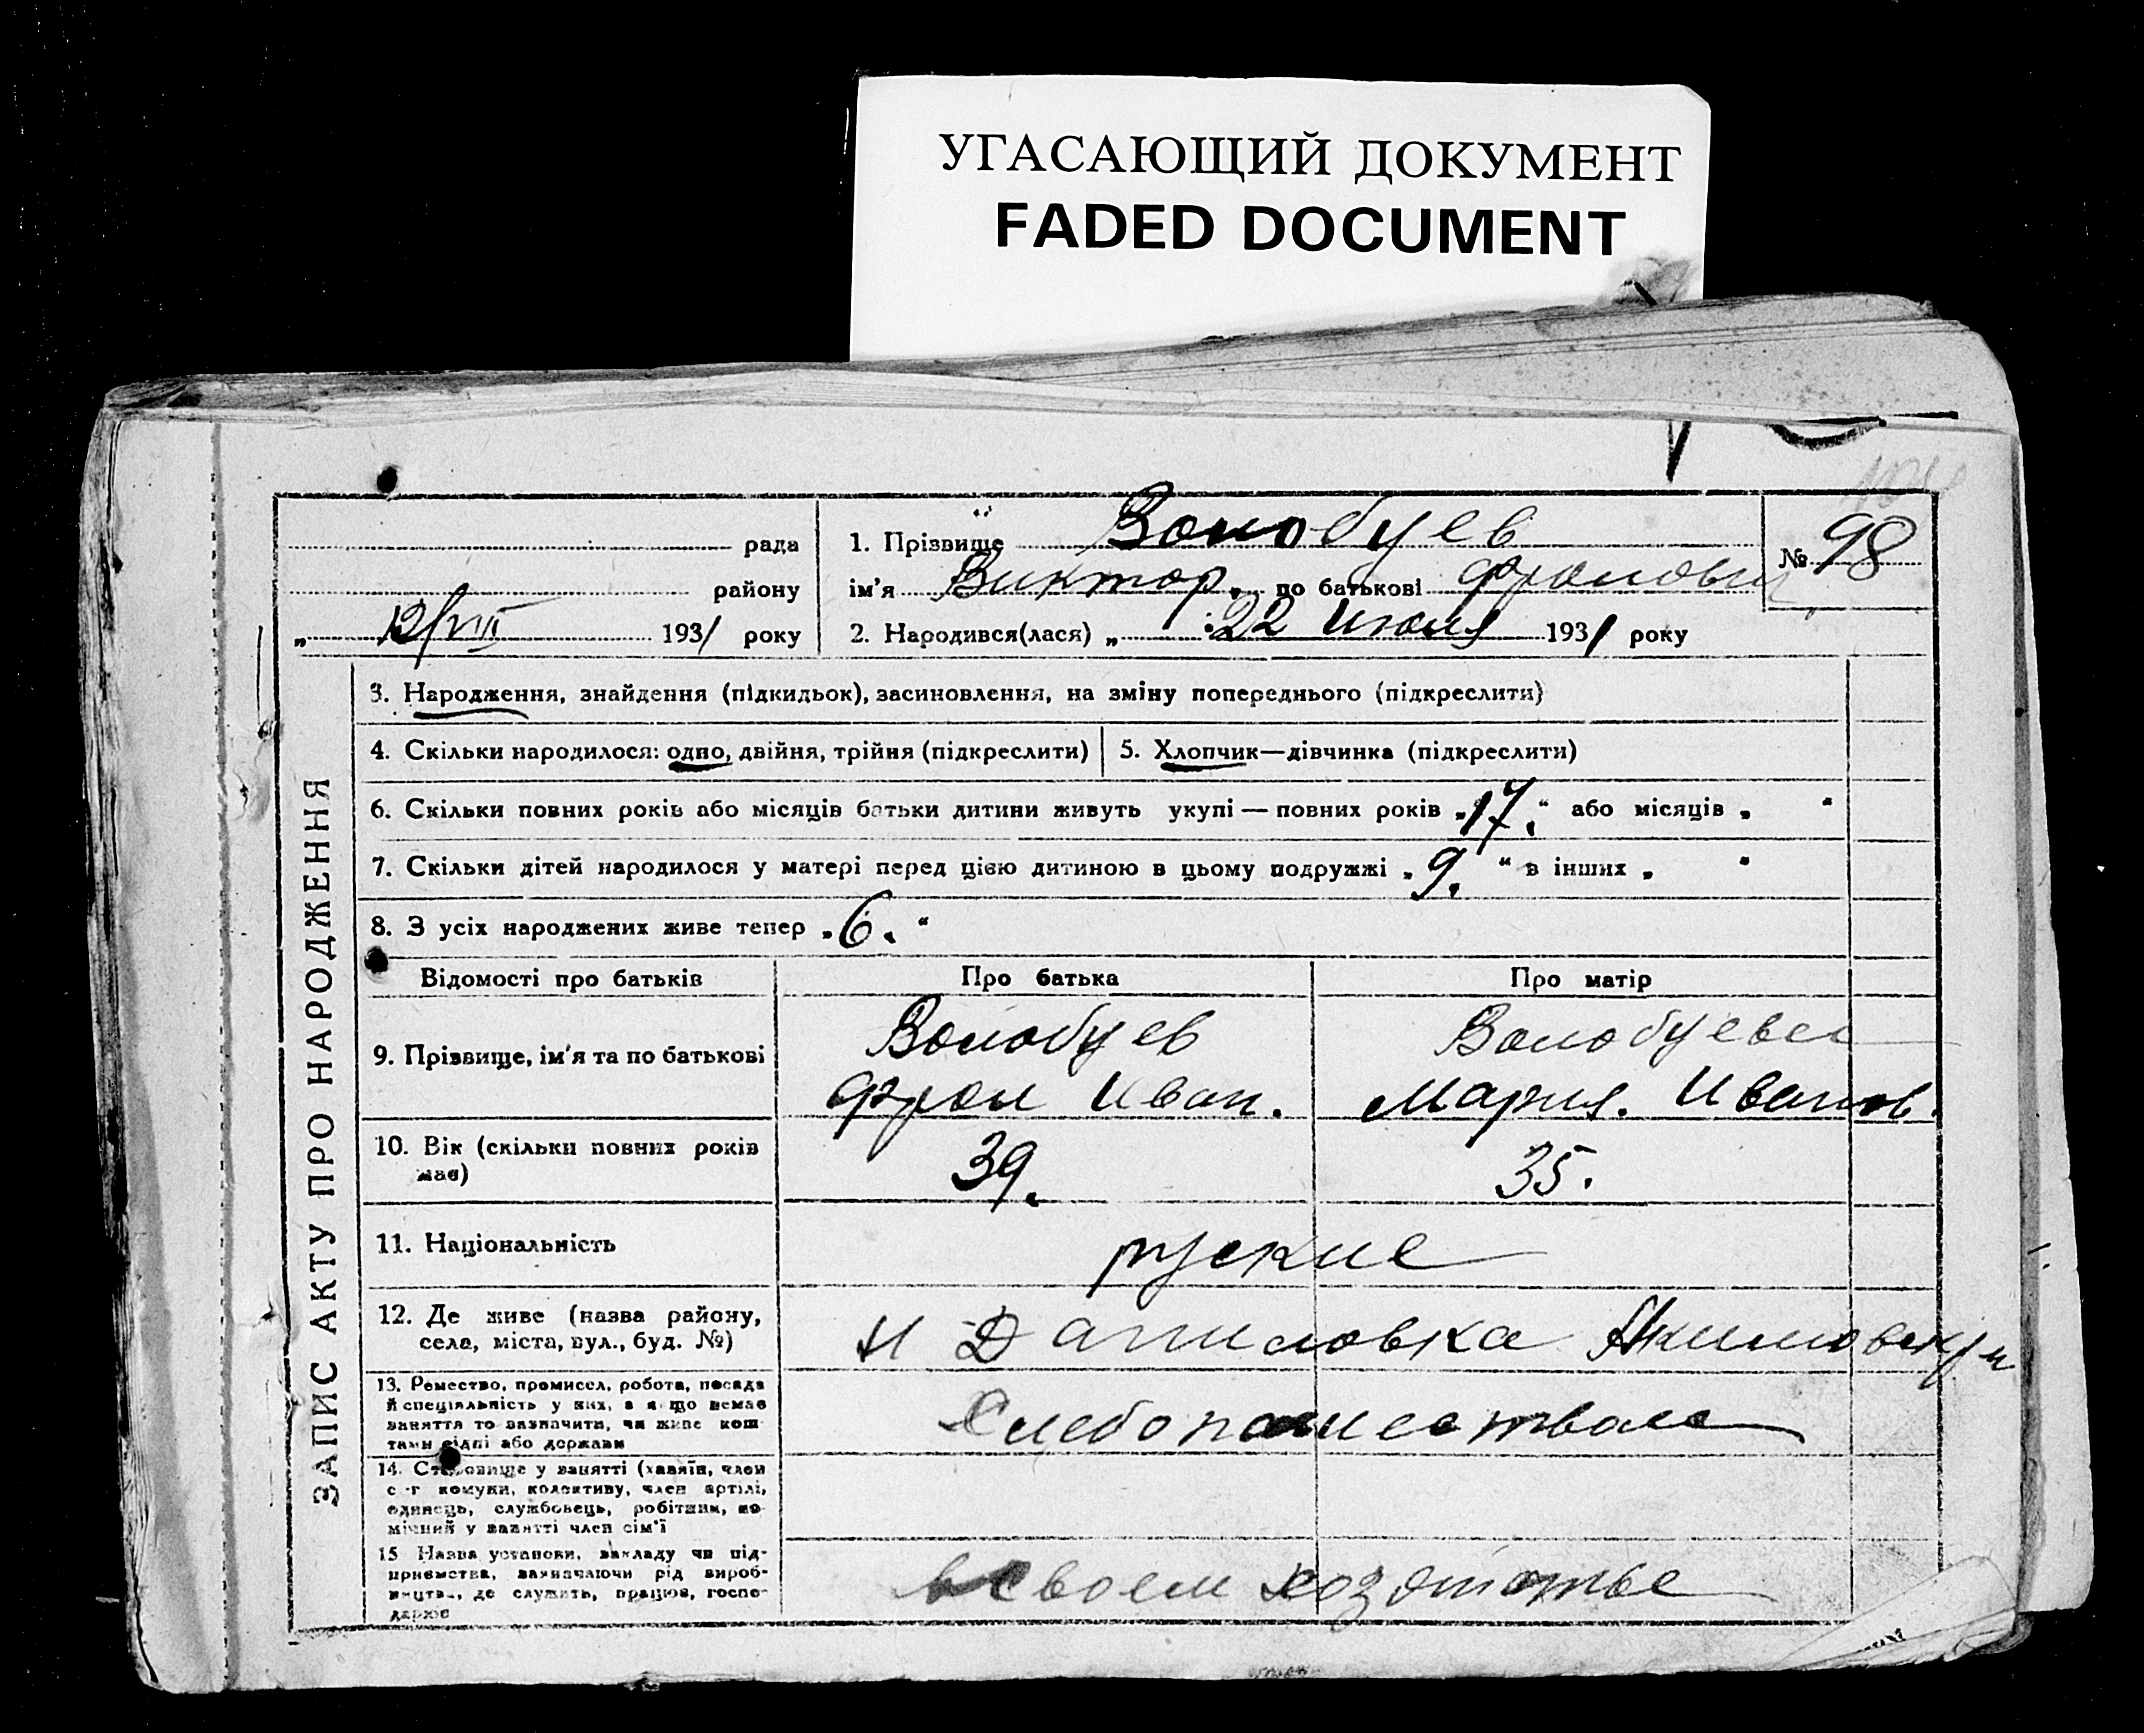 УГАСАЮЩИЙ ДОКУМЕНТ
FADED DOCUMENT
рада
району
„ 12/VIII 1931 року
1. Прізвище Волобуев
ім'я Виктор. по батькові Фролович
2. Народився(лася) „ 22 Июля 1931 року
№ 98
ЗАПИС АКТУ ПРО НАРОДЖЕННЯ
3. Народження, знайдення (підкидьок), засиновлення, на зміну попереднього (підкреслити)
4. Скільки народилося: одно, двійня, трійня (підкреслити)
5. Хлопчик—дівчинка (підкреслити)
6. Скільки повних років або місяців батьки дитини живуть укупі — повних років „17." або місяців „ "
7. Скільки дітей народилося у матері перед цією дитиною в цьому подружжі „9." в інших „ "
8. З усіх народжених живе тепер „6."
Відомості про батьків Про батька Про матір
9. Прізвище, ім'я та по батькові
Волобуев
Фрол Иван.
Волобуева
Мария. Иванов.
10. Вік (скільки повних років
має)
39.
35.
11. Національність
руские
12. Де живе (назва району,
села, міста, вул., буд. №)
Даниловка
13. Ремество, промисел, робота, посада
й спеціяльність у них, а якщо немає
заняття то зазначити, чи живе кош-
тами рідні або держави
Хлебопашеством
14. Становище у занятті (хазяїн, член
с-г комуни, колективу, член артілі,
одинець, службовець, робітник, по-
мічний у занятті член сім'ї
15 Назва установи, закладу чи під-
приємства, зазначаючи рід вироб-
ництва, де служить, працює, госпо-
дарює
в своем хозяйстве